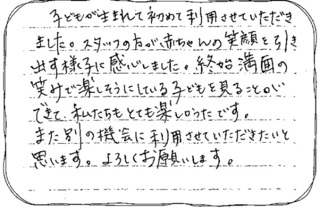 子どもが生まれて初めて利用させていただき
ました。スタッフの方が赤ちゃんの笑顔を引き
出す様子に感心しました。終始満面の
笑みで楽しそうにしている子どもを見ることが
できて、私たちもとても楽しかったです。
また別の機会に利用させていただきたいと
思います。よろしくお願いします。